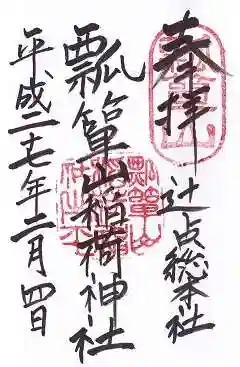 奉拝 辻占総本社
瓢箪山稲荷神社
平成二十七年二月四日